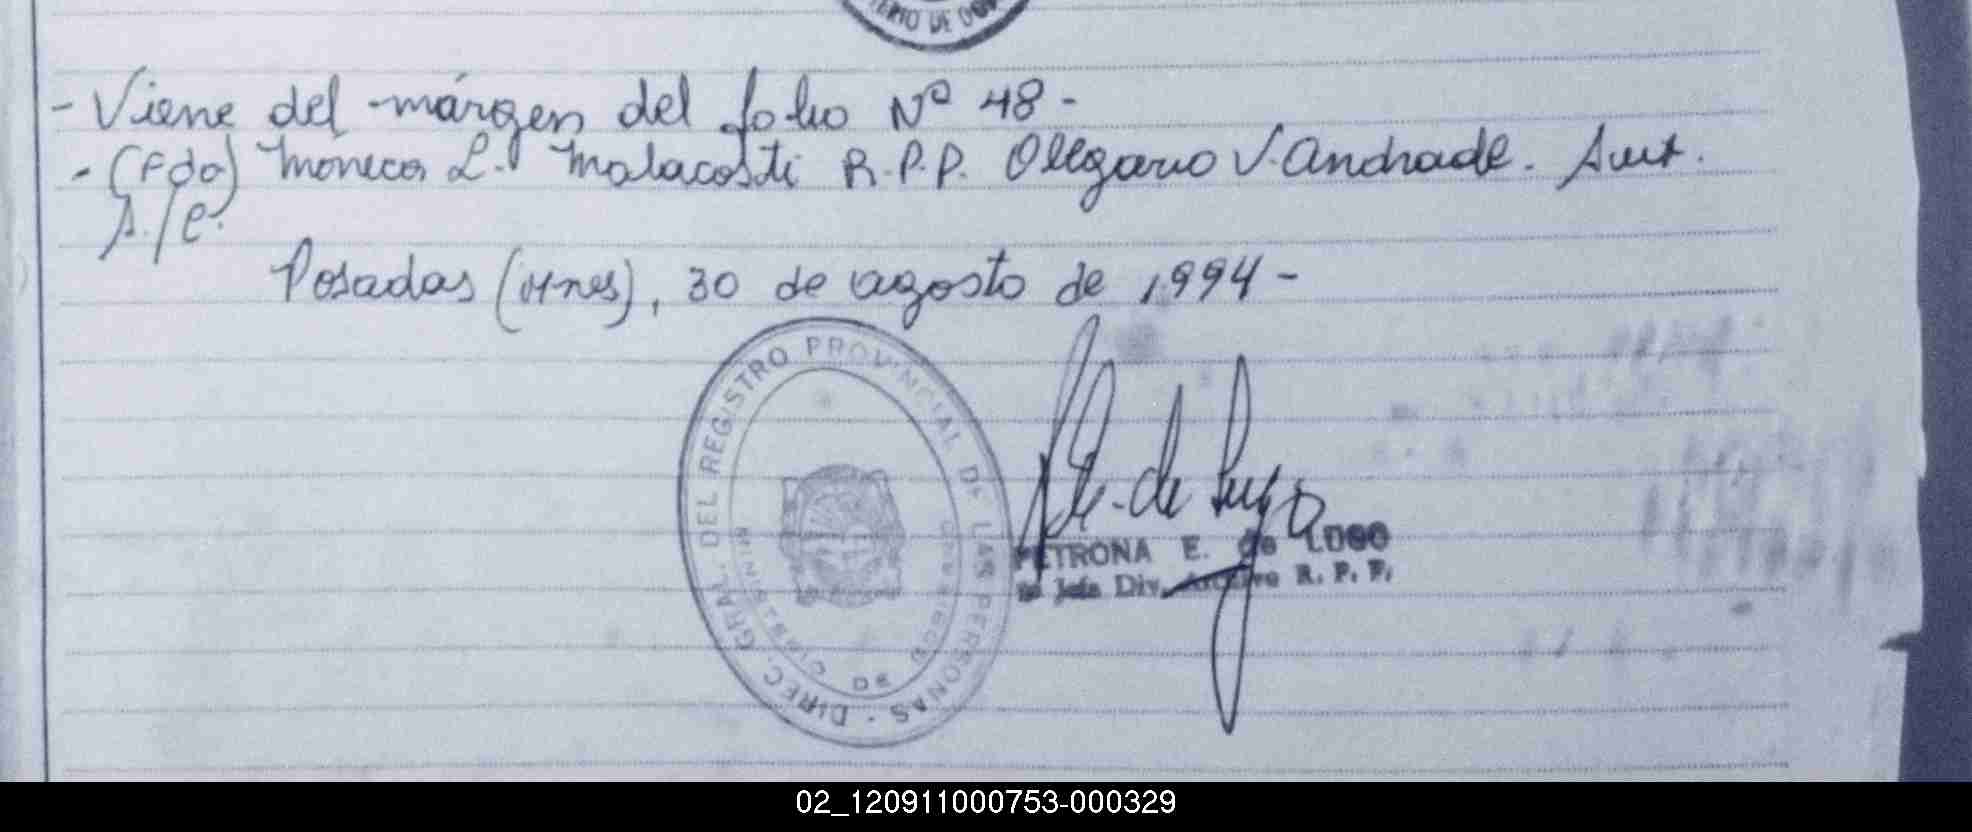 TERIO DE GOB
- Viene del márgen del folio Nº 48 -
- (Fdo) Mónica L. Malacosti R.P.P. Olegario V. Andrade. Aux.
A./C.
Posadas (Mnes), 30 de agosto de 1994 -
DIREC. GRAL. DEL REGISTRO PROVINCIAL DE LAS PERSONAS -
MINISTERIO DE GOBIERNO
P. E. de Lugo
PETRONA E. de LUGO
Jefe Div. Archivo R. P. P.
02_120911000753-000329